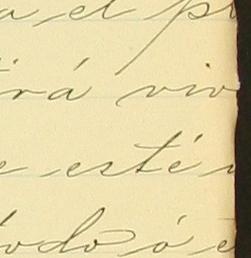 a el p
rá viv
e esté
todo ó e